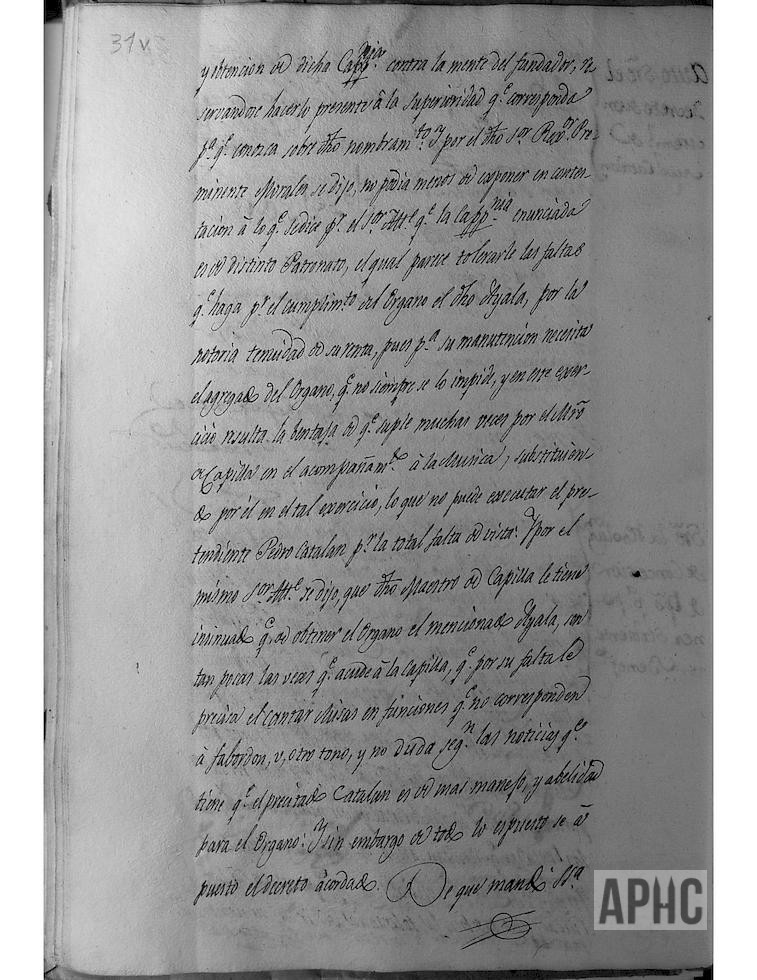 31v.
y obtencion de dicha Capp.nia contra la mente del fundador, re
servandose hacerlo presente à la superioridad q.e corresponda
p.a q.e conozca sobre dho nombram.to: Y por el dho s.or Rex.or Pre-
minente Morales se dijo, no podia menos de exponer en contes-
tacion à lo q.e se dice p.r el s.or Att.e q.e la Capp.nia enunciada
es de distinto Patronato, el qual parece tolerarle las faltas
q.e haga p.r el cumplim.to del Organo el dho Ayala, por la
notoria tenuidad de su renta, pues p.a su manutencion necesita
el agregado del Organo, q.e no siempre se lo impide, y en este exer-
cicio resulta la bentaja de q.e suple muchas veces por el Mrõ
de Capilla en el acompañam.to à la Musica, substituien-
do por él en el tal exercicio, lo que no puede executar el pre-
tendiente Pedro Catalan p.r la total falta de vista: Y por el
mismo s.or Att.e se dijo, que dho Maestro de Capilla le tiene
insinuado q.e de obtener el Organo el mencionado Ayala, son
tan pocas las veces q.e acude à la Capilla, q.e por su falta le
precisa el cantar Misas en funciones q.e no corresponden
à fabordon, v, otro tono, y no duda seg.n las noticias q.e
tiene q.e el precitado Catalan es de mas manejo, y abelidad
para el Organo: Y sin embargo de todo lo espuesto se à
puesto el decreto àcordado. De que mandó SS.a
APHC